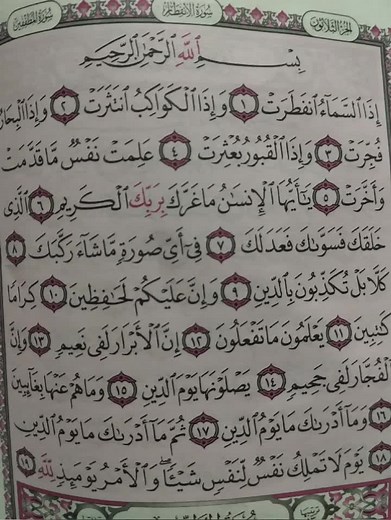 سورة المطففين سورة الانفطار الجزء الثلاثون
بِسْمِ ٱللَّهِ ٱلرَّحْمَٰنِ ٱلرَّحِيمِ
إِذَا ٱلسَّمَآءُ ٱنفَطَرَتْ ١ وَإِذَا ٱلْكَوَاكِبُ ٱنتَثَرَتْ ٢ وَإِذَا ٱلْبِحَارُ
فُجِّرَتْ ٣ وَإِذَا ٱلْقُبُورُ بُعْثِرَتْ ٤ عَلِمَتْ نَفْسٌ مَّا قَدَّمَتْ
وَأَخَّرَتْ ٥ يَٰٓأَيُّهَا ٱلْإِنسَٰنُ مَا غَرَّكَ بِرَبِّكَ ٱلْكَرِيمِ ٦ ٱلَّذِى
خَلَقَكَ فَسَوَّىٰكَ فَعَدَلَكَ ٧ فِىٓ أَىِّ صُورَةٍ مَّا شَآءَ رَكَّبَكَ ٨
كَلَّا بَلْ تُكَذِّبُونَ بِٱلدِّينِ ٩ وَإِنَّ عَلَيْكُمْ لَحَٰفِظِينَ ١٠ كِرَامًا
كَٰتِبِينَ ١١ يَعْلَمُونَ مَا تَفْعَلُونَ ١٢ إِنَّ ٱلْأَبْرَارَ لَفِى نَعِيمٍ ١٣ وَإِنَّ
ٱلْفُجَّارَ لَفِى جَحِيمٍ ١٤ يَصْلَوْنَهَا يَوْمَ ٱلدِّينِ ١٥ وَمَا هُمْ عَنْهَا بِغَآئِبِينَ
١٦ وَمَآ أَدْرَىٰكَ مَا يَوْمُ ٱلدِّينِ ١٧ ثُمَّ مَآ أَدْرَىٰكَ مَا يَوْمُ ٱلدِّينِ
١٨ يَوْمَ لَا تَمْلِكُ نَفْسٌ لِّنَفْسٍ شَيْـًٔا ۖ وَٱلْأَمْرُ يَوْمَئِذٍ لِّلَّهِ ١٩